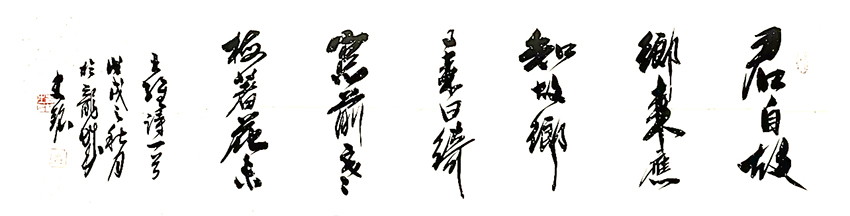 君自故
鄉來應
知故鄉
事來日綺
窗前寒
梅著花未
王維詩一首
戊戌之秋月
於龍城